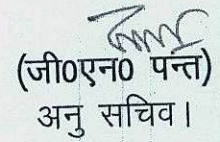 (जी0एन0 पंन्त)
अनु सचिव।